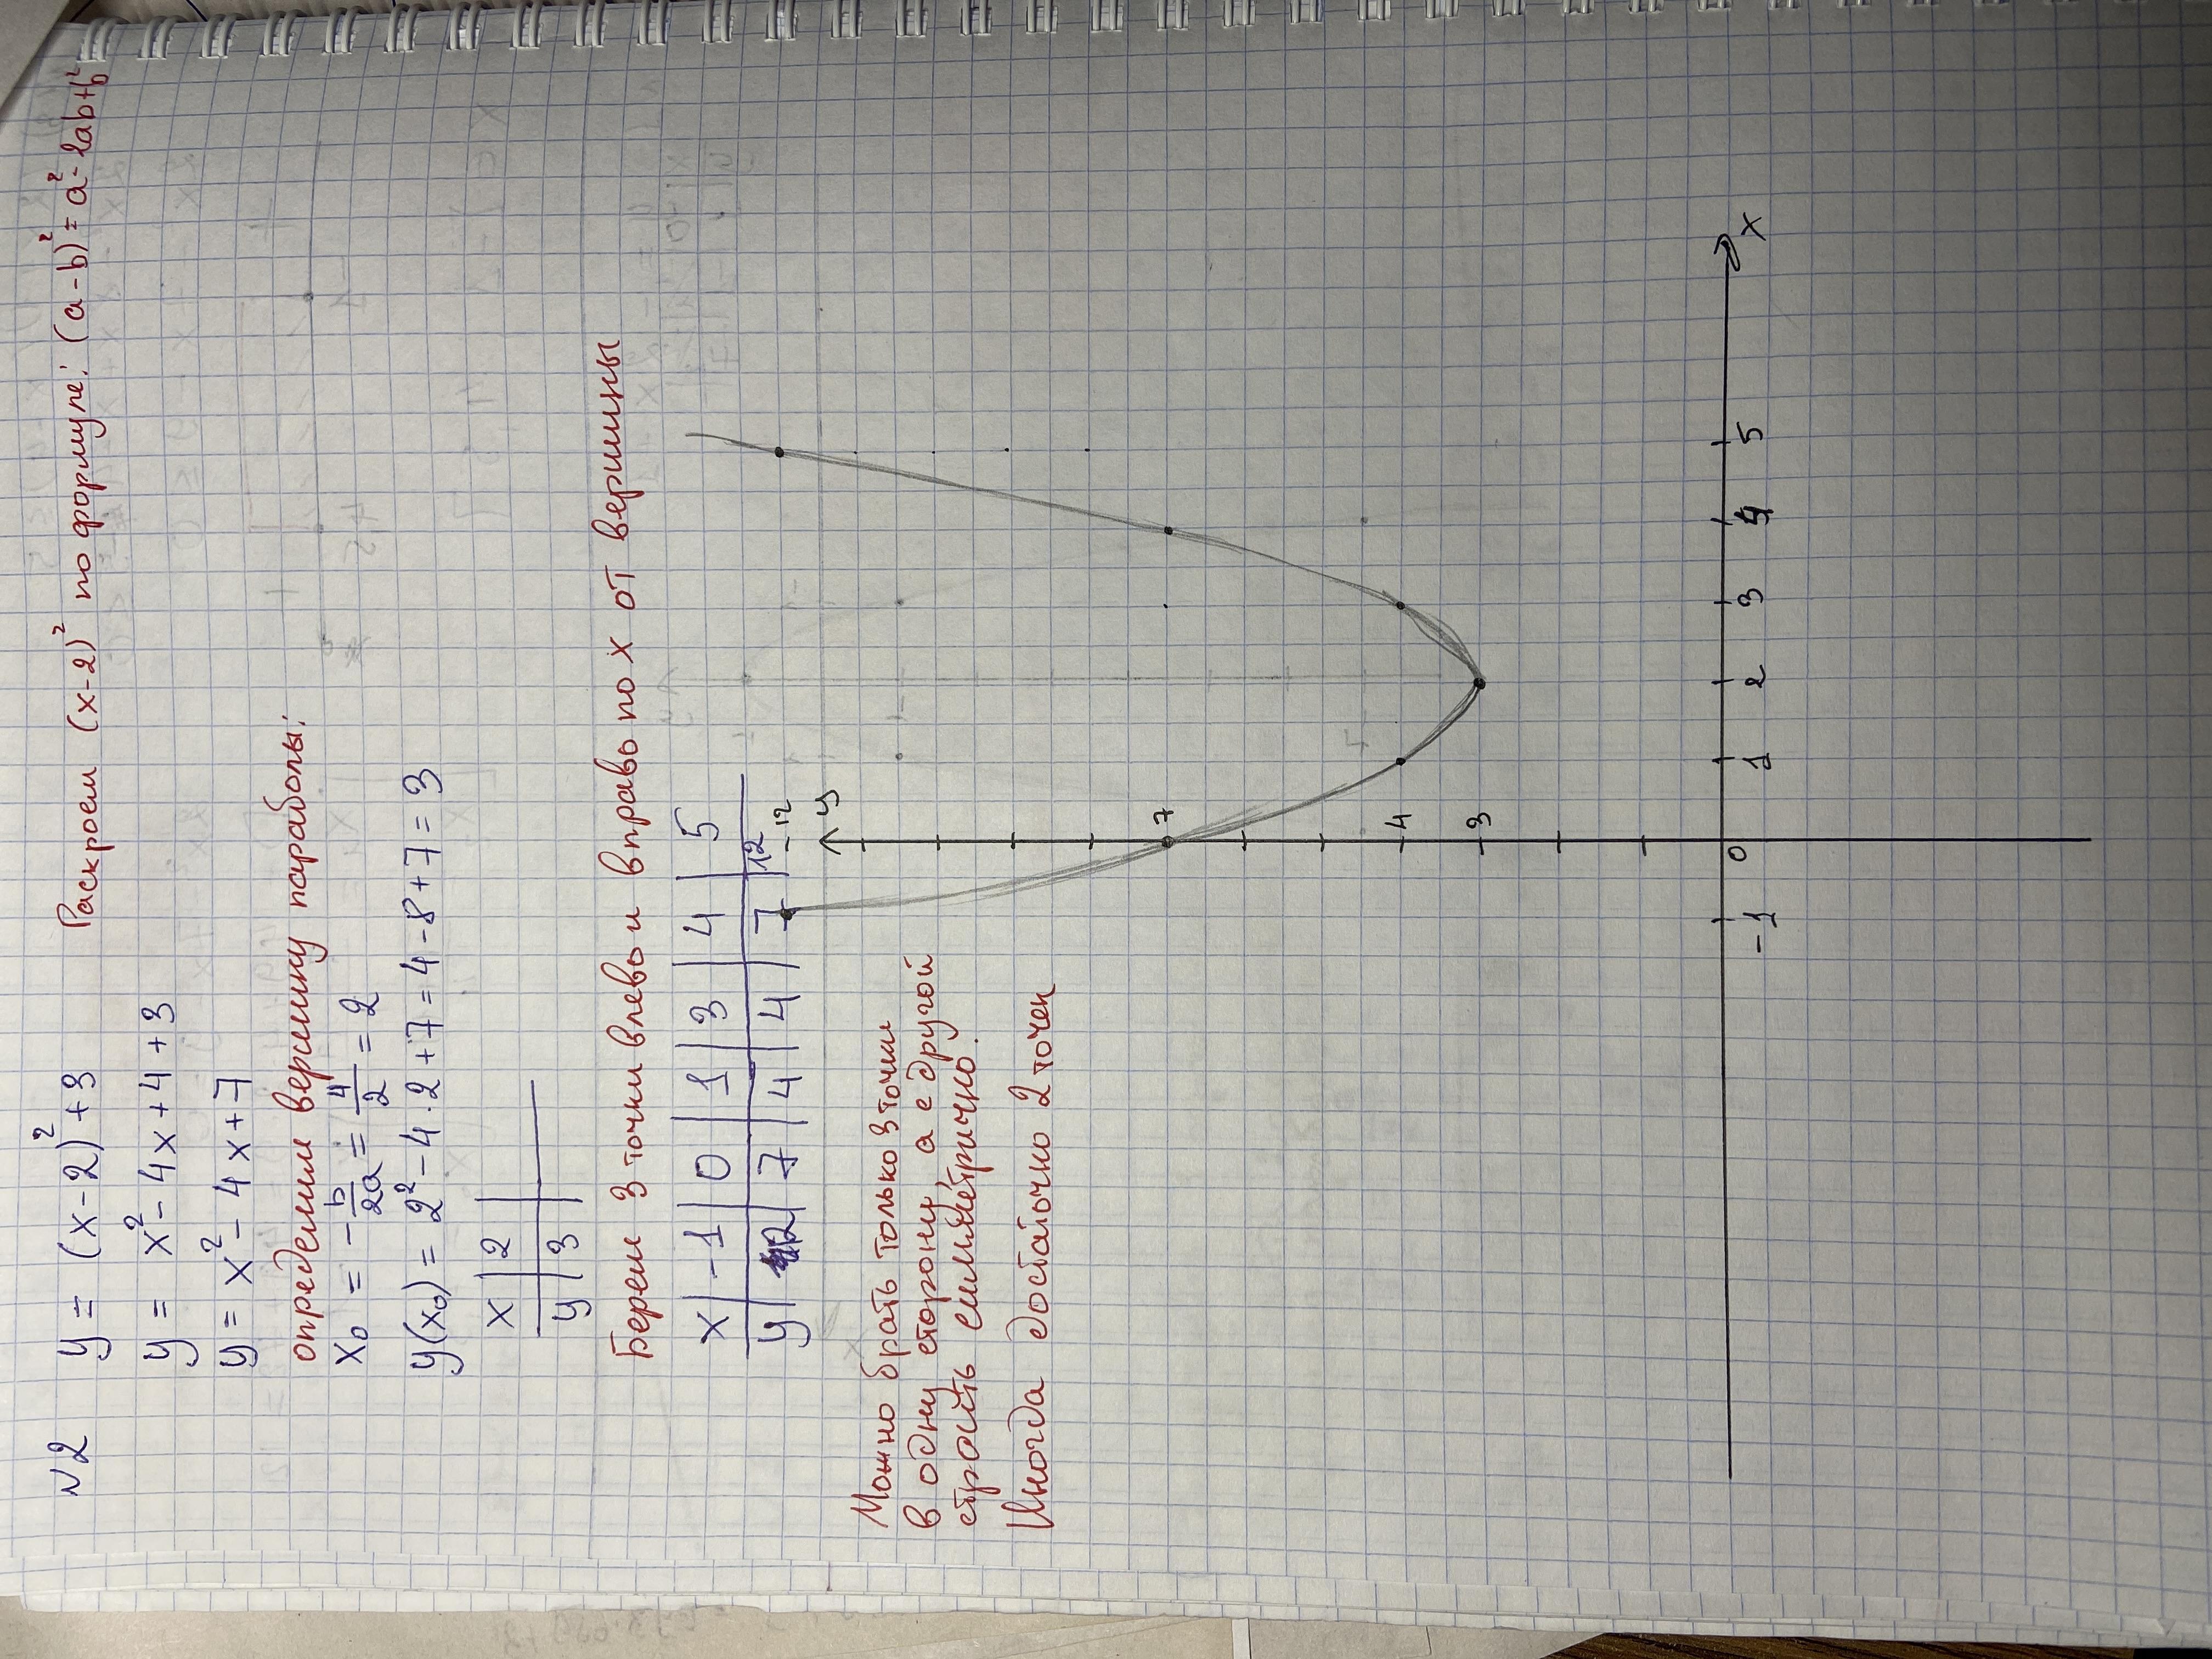 №2 y = (x-2)² + 3 Раскроем (x-2)² по формуле: (a-b)² = a²-2ab+b²
y = x² - 4x + 4 + 3
y = x² - 4x + 7
определим вершину параболы:
x₀ = -b/2a = 4/2 = 2
y(x₀) = 2² - 4·2 + 7 = 4 - 8 + 7 = 3
x | 2 |
y | 3 |
Берем 3 точки влево и вправо по x от вершины
x | -1 | 0 | 1 | 3 | 4 | 5
y | 12 | 7 | 4 | 4 | 7 | 12
Можно брать только 3 точки
в одну сторону, а с другой
строить симметрично.
Иногда достаточно 2 точек
12
y
7
4
3
-1 0 1 2 3 4 5 x